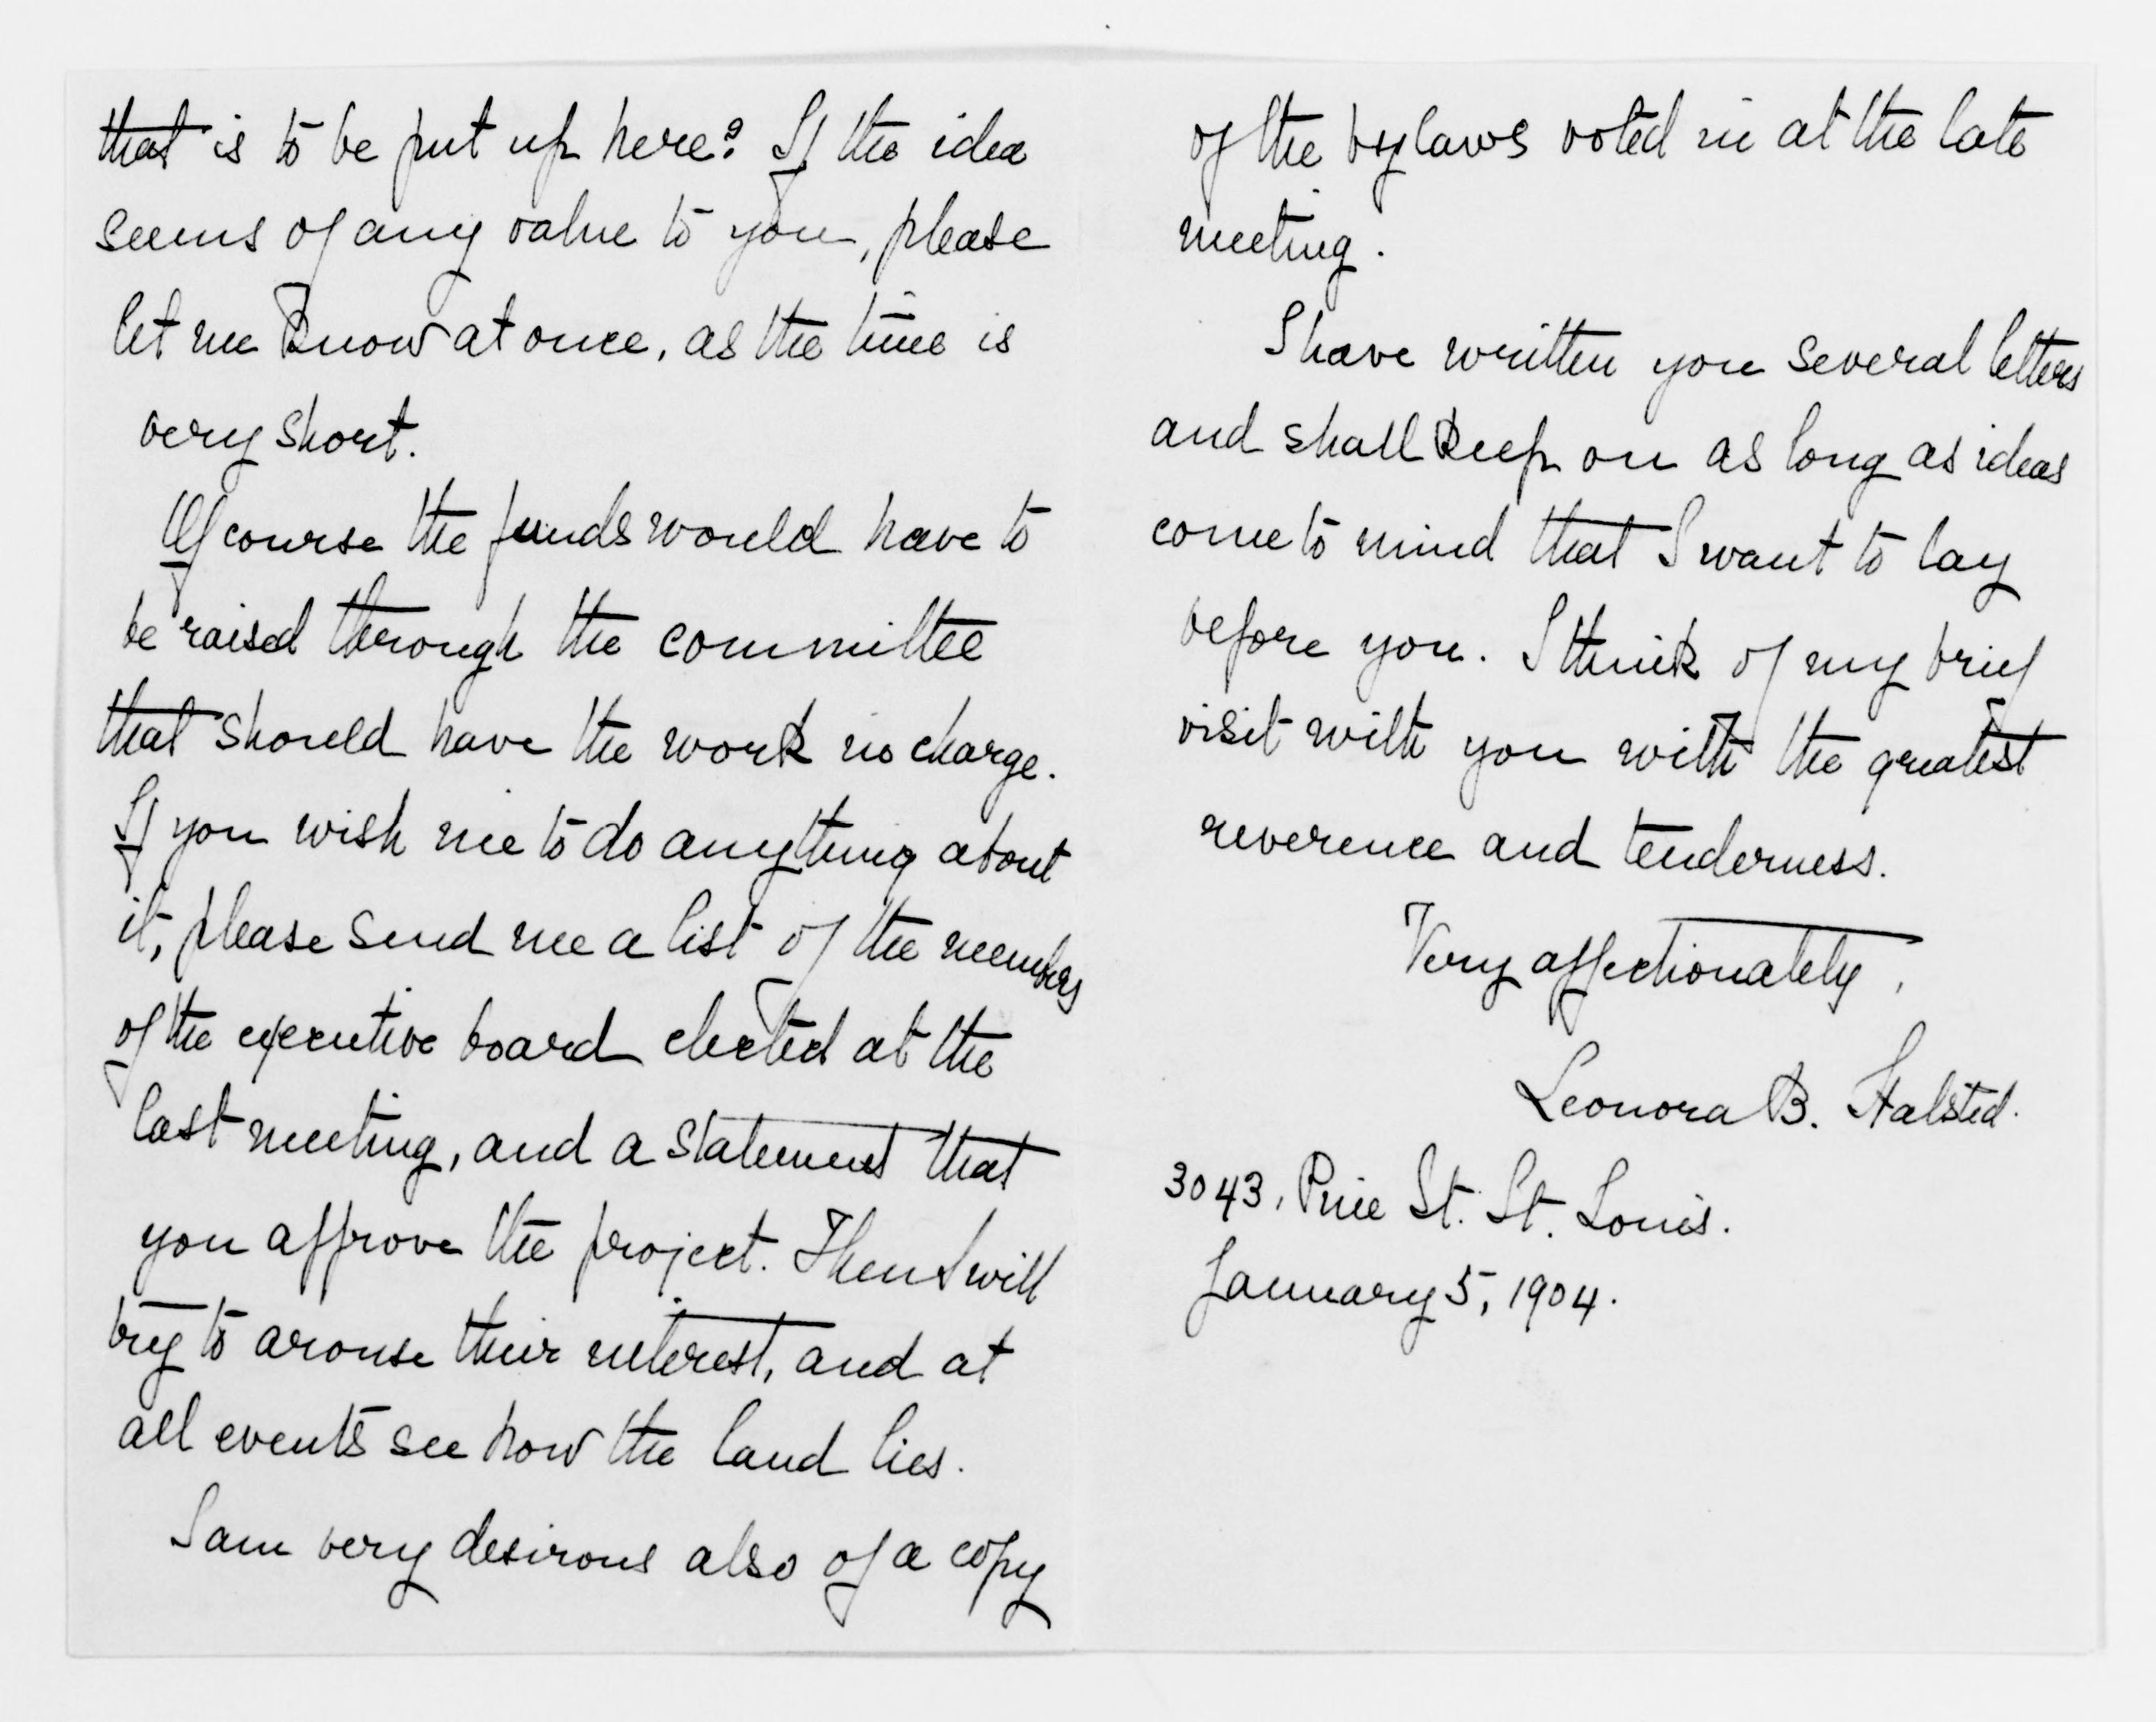 that is to be put up here? If the idea
seems of any value to you, please
let me know at once, as the time is
very short.
Of course the funds would have to
be raised through the committee
that should have the work in charge.
If you wish me to do anything about
it, please send me a list of the members
of the executive board elected at the
last meeting, and a statement that
you approve the project. Then I will
try to arouse their interest, and at
all events see how the land lies.
I am very desirous also of a copy
of the bylaws voted in at the late
meeting.
I have written you several letters
and shall keep on as long as ideas
come to mind that I want to lay
before you. I think of my brief
visit with you with the greatest
reverence and tenderness.
Very affectionately,
Leonora B. Halsted.
3043, Pine St. St. Louis.
January 5, 1904.